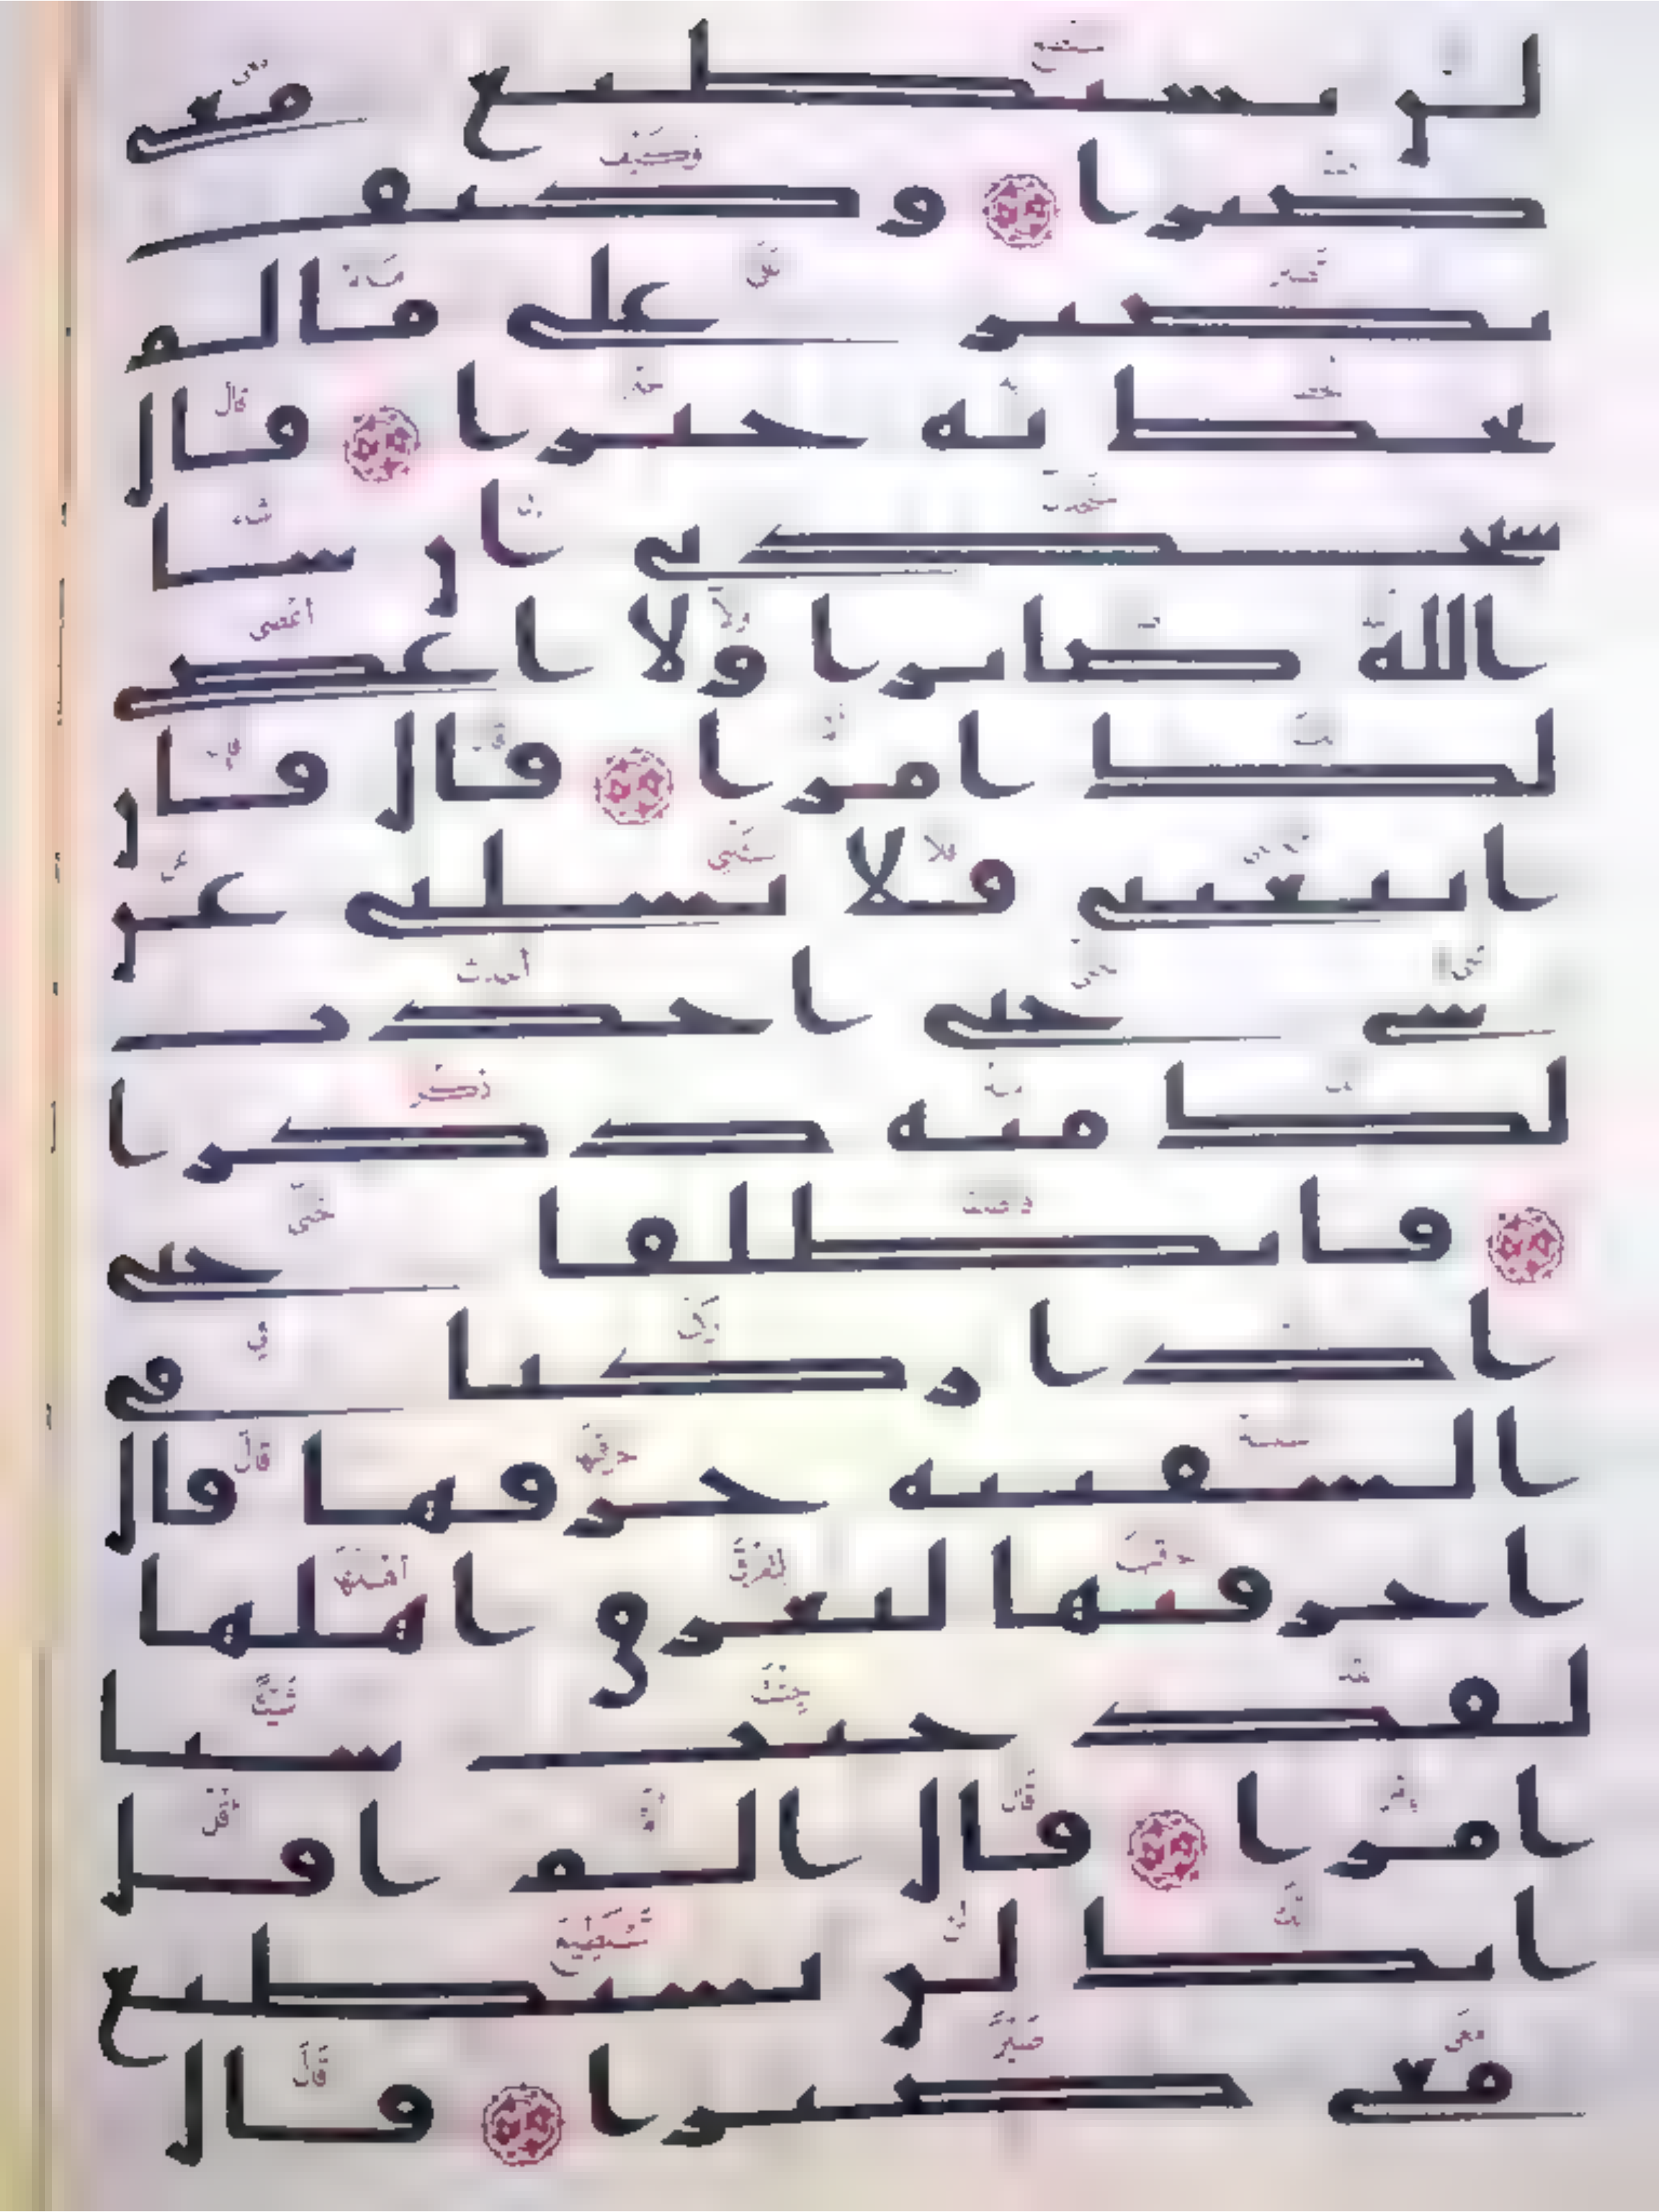 لن تستطيع معي
صبرا وكيف
تصبر على ما لم
تحط به خبرا قال
ستجدني ان شا
الله صابرا ولا اعصي
لك امرا قال فان
اتبعتني فلا تسلني عن
شي حتى احدث
لك منه ذكرا
فانطلقا حتى
اذا ركبا في
السفينة خرقها قال
اخرقتها لتغرق اهلها
لقد جئت شيا
امرا قال الم اقل
انك لن تستطيع
معي صبرا قال